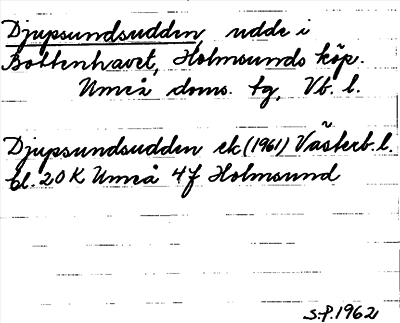 Djupsundsudden, udde i
Bottenhavet, Holmsunds köp.
Umeå doms. tg, Vb. l.
Djupsundsudden ek (1961) Västerb. l.
bl. 20 K Umeå 4f Holmsund
S.P. 1962